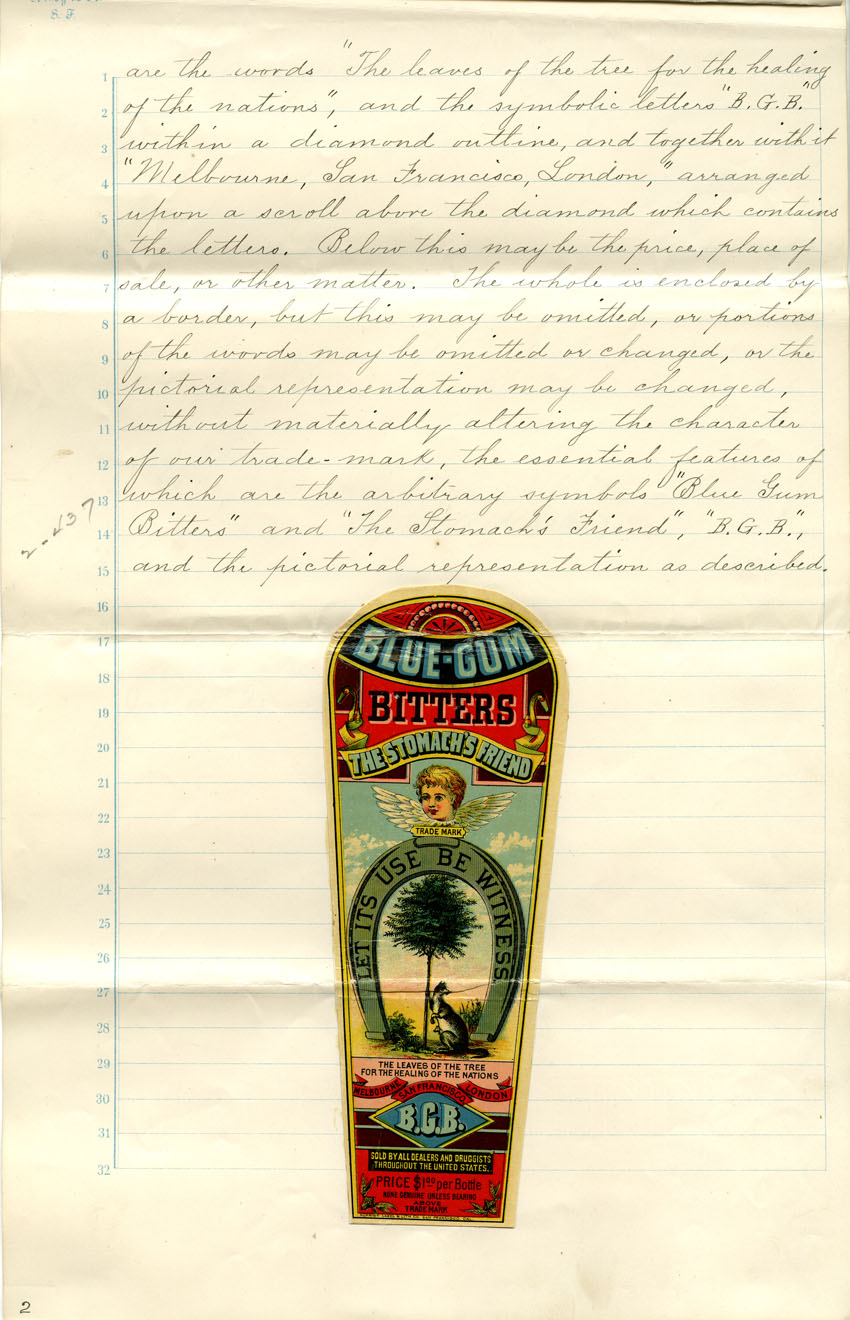 S. F.
1 are the words "The leaves of the tree for the healing
2 of the nations", and the symbolic letters "B. G. B."
3 within a diamond outline, and together with it
4 "Melbourne, San Francisco, London," arranged
5 upon a scroll above the diamond which contains
6 the letters. Below this may be the price, place of
7 sale, or other matter. The whole is enclosed by
8 a border, but this may be omitted, or portions
9 of the words may be omitted or changed, or the
10 pictorial representation may be changed,
11 without materially altering the character
12 of our trade-mark, the essential features of
13 which are the arbitrary symbols "Blue Gum
14 Bitters" and "The Stomach's Friend", "B. G. B.",
15 and the pictorial representation as described.
2-437
16
17
18
19
20
21
22
23
24
25
26
27
28
29
30
31
32
BLUE-GUM
BITTERS
THE STOMACH'S FRIEND
TRADE MARK
LET ITS USE BE WITNESS
THE LEAVES OF THE TREE
FOR THE HEALING OF THE NATIONS
MELBOURNE SAN FRANCISCO LONDON
B.G.B.
SOLD BY ALL DEALERS AND DRUGGISTS
THROUGHOUT THE UNITED STATES.
PRICE $1.00 per Bottle
NONE GENUINE UNLESS BEARING
ABOVE
TRADE MARK
LITH. CO. SAN FRANCISCO, CAL.
2